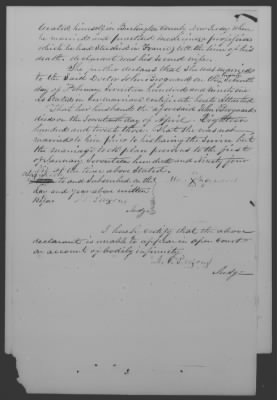 located himself in Burlington County New Jersey where
he married and practised medicine a profession
which he had studied in France till the time of his
death. Declarant was his second wife.
She further declares that she was married
to the said Doctor John
day of February Seventeen hundred and ninety one
as stated in her marriage certificate hereto attached
That her husband the aforesaid John
died on the Seventeenth day of April Eighteen
hundred and twenty three. That she was not
married to him prior to his leaving the Service but
the marriage took place previous to the first
of January Seventeen hundred and ninety four
viz at the time above stated.
to and Subscribed on the
day and year above written
before
Judge
I hereby certify that the above
declarant is unable to appear in open Court
on account of bodily infirmity
Judge